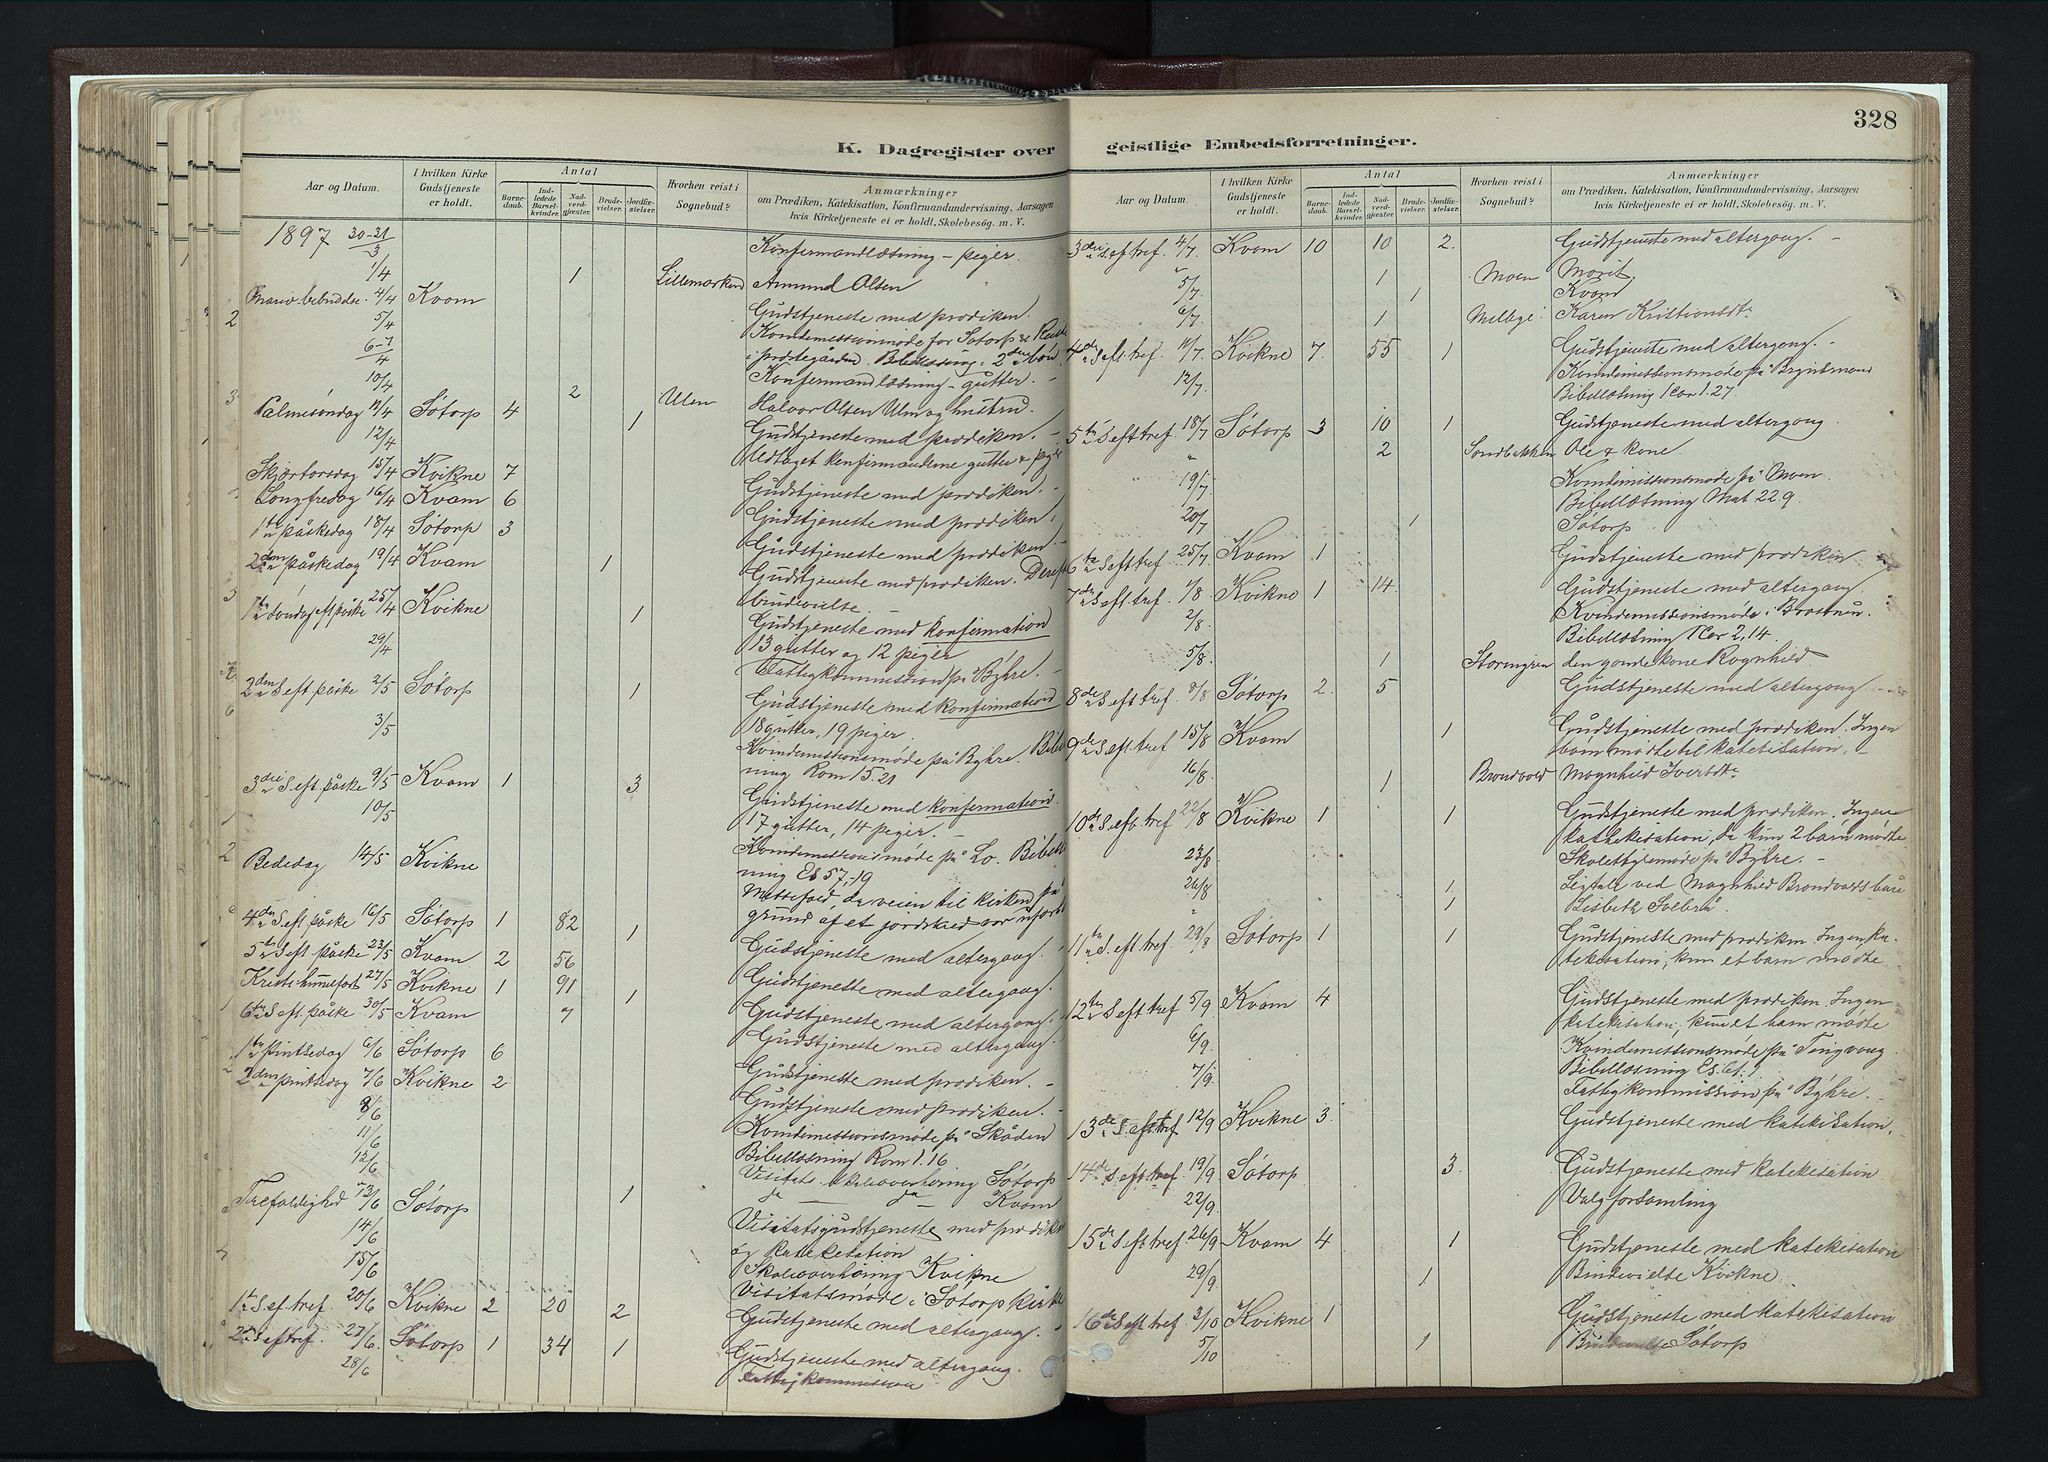 328
K. Dagregister over geistlige Embedsforretninger.
Aar og Datum.
I hvilken Kirke Gudstjeneste er holdt.
Antal
Barnedaab.
Indledede Barselkvinder.
Nadverdgjæster.
Brudevielser.
Jordfæstelser.
Hvorhen reist i Sognebud?
Anmærkninger
om Prædiken, Katekisation, Konfirmandundervisning, Aarsagen
hvis Kirketjeneste ei er holdt, Skolebesøg. m. V.
1897 30-21/3 Konfirmandlæsning - piger.
1/4 1 Lillemorken Amund Olsen
Mariæ bebudelse 4/4 Kvam Gudstjeneste med prædiken.
5/4 Kvindemissionsmøde for Sötorp
i præstegården Bibellæsning
6-7/4 Konfirmandlæsning - gutter.
10/4 2 Ulen Halvor Olsen Ulen og hustru.
Palmesöndag 11/4 Sötorp 4 1 Gudstjeneste med prædiken.
12/4 Udtaget konfirmanderne gutter & piger
Skjærtorsdag 15/4 Kvikne 7 Gudstjeneste med prædiken.
Langfredag 16/4 Kvam 6 Gudstjeneste med prædiken.
1ste påskedag 18/4 Sötorp 3 Gudstjeneste med prædiken.
2den påskedag 19/4 Kvam 1 Gudstjeneste med prædiken. Derefter
brudevielse.
1ste söndag eft påske 25/4 Kvikne 1 Gudstjeneste med konfirmation
13 gutter og 12 piger
29/4 Fattigkommission på Byhre.
2den S eft påske 2/5 Sötorp 1 Gudstjeneste med konfirmation
18 gutter, 19 piger.
3/5 Kvindemissionsmøde på Byhre. Bibel
ning Rom 15.21
3die S eft påske 9/5 Kvam 1 3 Gudstjeneste med konfirmation.
17 gutter, 14 piger.
10/5 Kvindemissionsmøde på Lo. Bibellæs
ning Es 57,-19
Bededag 14/5 Kvikne Messefald, da veien til kirken på
grund af et jordskred var ufarb
4de S eft påske 16/5 Sötorp 1 82 1 Gudstjeneste med altergang.
5te S eft påske 23/5 Kvam 2 56 Gudstjeneste med altergang.
Kristi himmelfart 27/5 Kvikne 1 91 1 Gudstjeneste med altergang.
6te S eft påske 30/5 Kvam 7 Gudstjeneste med altergang.
1ste pintsedag 6/6 Sötorp 6 Gudstjeneste med prædiken.
2den pintsedag 7/6 Kvikne 2 Gudstjeneste med prædiken.
8/6 Kvindemissionsmøde på Skåden
Bibellæsning Rom 1.16
11/6 Visitats skoleoverhøring Sötorp
12/6 da — da — Kvam
Trefoldighed 13/6 Sötorp 1 Visitatsgudstjeneste med prædiken
og katekisation
14/6 Skoleoverhøring Kvikne
15/6 Visitatsmøde i Sötorp kirke
1ste S ef. tref. 20/6 Kvikne 2 20 2 Gudstjeneste med altergang.
2den S ef tref. 27/6 Sötorp 1 34 1 Gudstjeneste med altergang.
28/6 Fattigkommission
Aar og Datum.
I hvilken Kirke Gudstjeneste er holdt.
Antal
Barnedaab.
Indledede Barselkvinder.
Nadverdgjæster.
Brudevielser.
Jordfæstelser.
Hvorhen reist i Sognebud?
Anmærkninger
om Prædiken, Katekisation, Konfirmandundervisning, Aarsagen
hvis Kirketjeneste ei er holdt, Skolebesøg. m. V.
3die S ef tref. 4/7 Kvam 10 10 2. Gudstjeneste med altergang.
" 1 Moen Marit
5/7 1 Kvam
6/7 1 Melbye Karen Kristiansdtr
4de S eft tref. 11/7 Kvikne 7. 55 1 Gudstjeneste med altergang.
12/7 Kvindemissionsmøde på
Bibellæsning 1 Cor 1.27.
5te S eft tref. 18/7 Sötorp 3 10 1 Gudstjeneste med altergang.
" 2 Sandbakken Ole & kone.
19/7 Kvindemissionsmøde på Moen
Bibellæsning Mat 22 9
20/7 1 Sötorp
6te S eft tref 25/7 Kvam 1 Gudstjeneste med prædiken
7de S eft. tref. 1/8 Kvikne 1 14 Gudstjeneste med altergang.
2/8 Kvindemissionsmøde i
Bibellæsning 1 Cor 2,14.
5/8 1 Storengen den gamle kone Ragnhild
8de S eft tref. 8/8 Sötorp 2. 5 Gudstjeneste med altergang
9de S eft tref. 15/8 Kvam 1 Gudstjeneste med prædiken. Ingen
børn mødte til katekisation.
16/8 1 Brandvold Magnhild Iversdtr
10de S eft tref 22/8 Kvikne 1 1 Gudstjeneste med prædiken. Ingen
kathekisation, da kun 2 barn mødte
23/8 Skolestyremøde på Byhre.
26/8 1 Ligtale ved Magnhild Brandvolds båre
" 1 Lisbeth Solbrå
11te S. eft tref. 29/8 Sötorp 1 1 Gudstjeneste med prædiken Ingen ka-
tekisation, kun et barn mødte
12te S eft tref 5/9 Kvam 4 Gudstjeneste med prædiken. Ingen
katekisation, kun et barn mødte
6/9. Kvindemissionsmøde på Tingvang
Bibellæsning Es. 61.1
7/9. Fattigkommission på Byhre.
13de S. eft tref 12/9 Kvikne 3. Gudstjeneste med katekisation.
14de S eft tref. 19/9 Sötorp 3. Gudstjeneste med katekisation
22/9. Valgforsamling
15de S eft tref. 26/9 Kvam 4 1 Gudstjeneste med katekisation
29/9 1 Brudevielse Kvikne
16de S eft tref 3/10 Kvikne 1 Gudstjeneste med katekisation
5/10 1 Brudevielse Sötorp